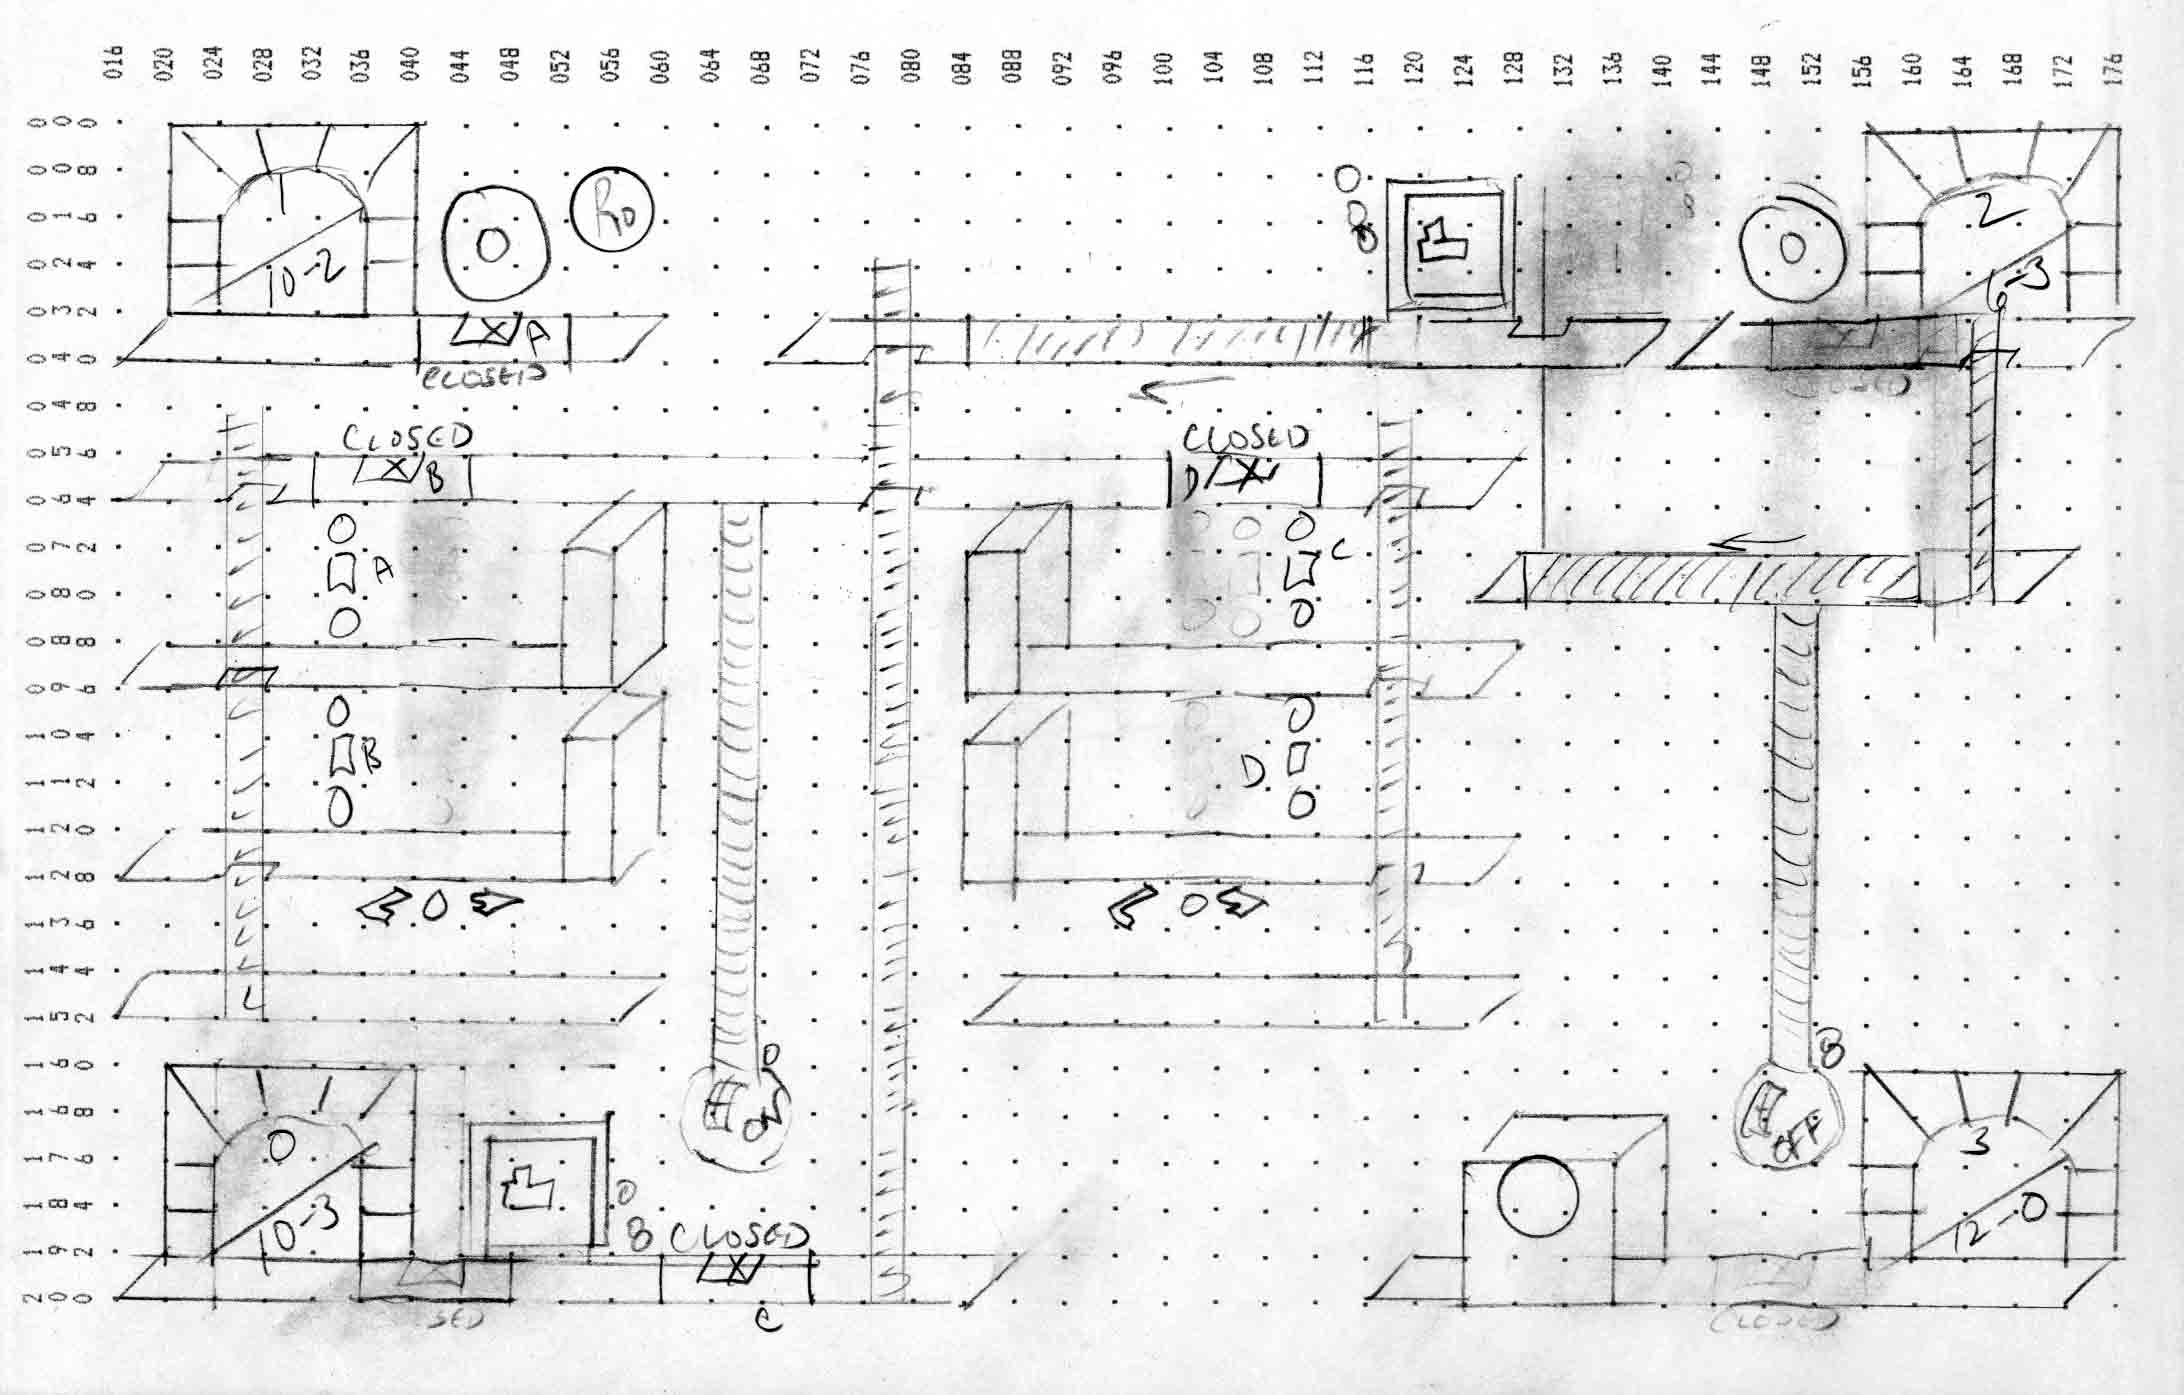 016 020 024 028 032 036 040 044 048 052 056 060 064 068 072 076 080 084 088 092 096 100 104 108 112 116 120 124 128 132 136 140 144 148 152 156 160 164 168 172 176
000
008
016
024
032
040
048
056
064
072
080
088
096
104
112
120
128
136
144
152
160
168
176
184
192
200
1
10-2
2
6-3
A
CLOSED
CLOSED
B
CLOSED
D
A
C
B
D
ON
B
OFF
0
10-3
B
CLOSED
C
3
12-0
SED
CLOSED